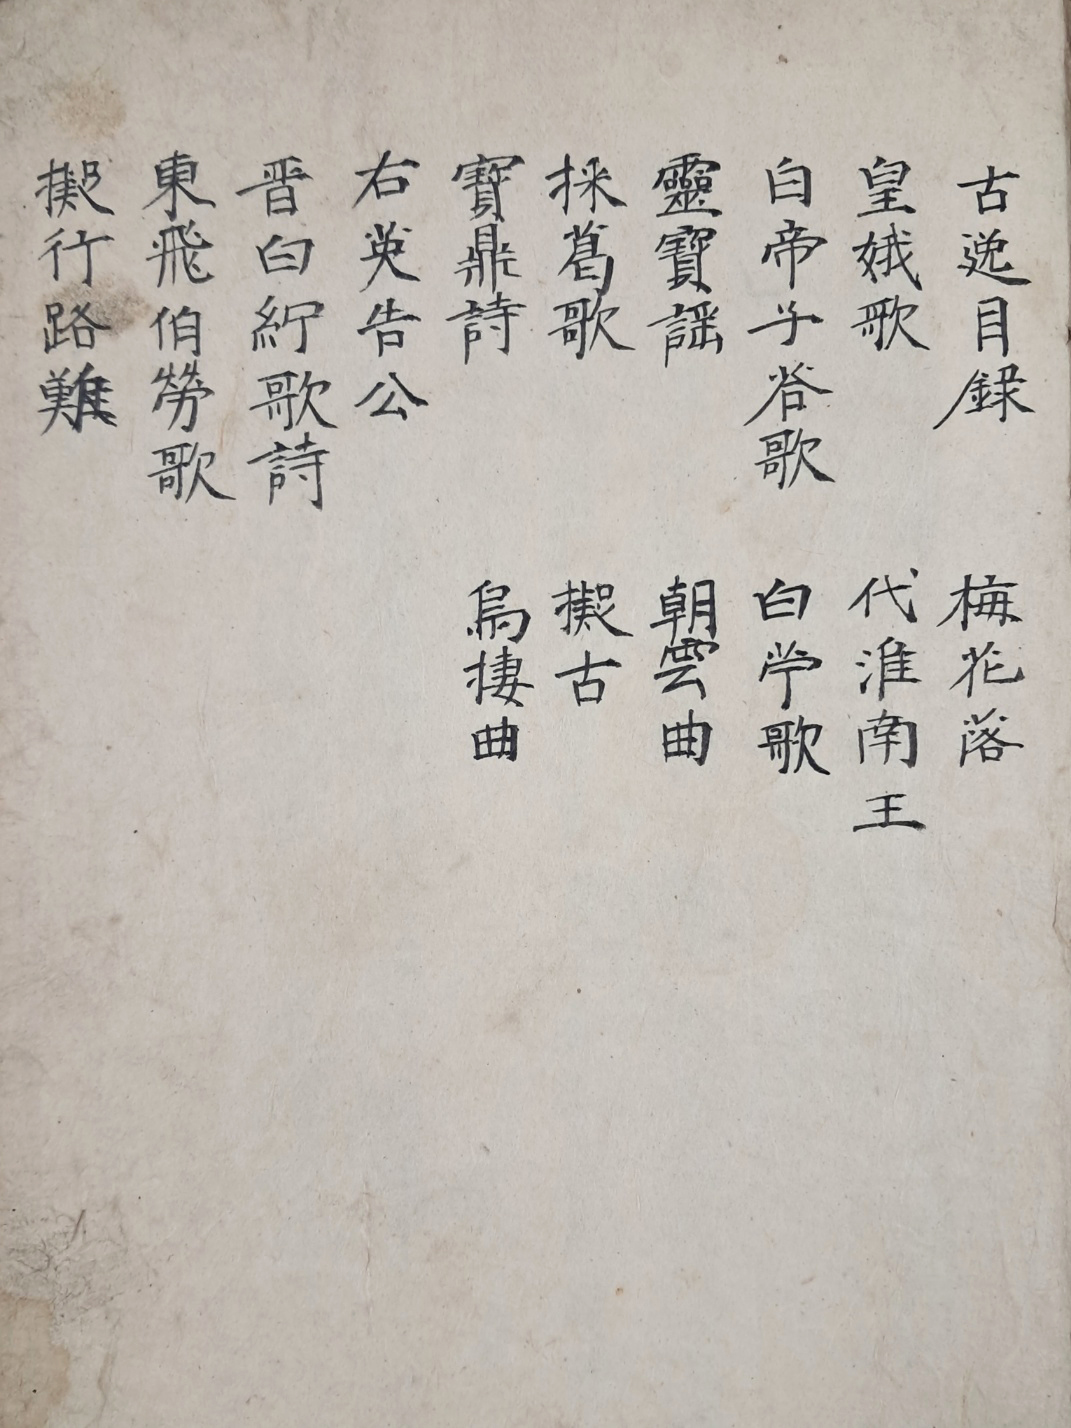 古逸目録
皇娥歌
白帝子答歌
靈寶謡
採葛歌
寶鼎詩
右英告公
晋白紵歌詩
東飛伯勞歌
擬行路難
梅花落
代淮南王
白苧歌
朝雲曲
擬古
烏棲曲